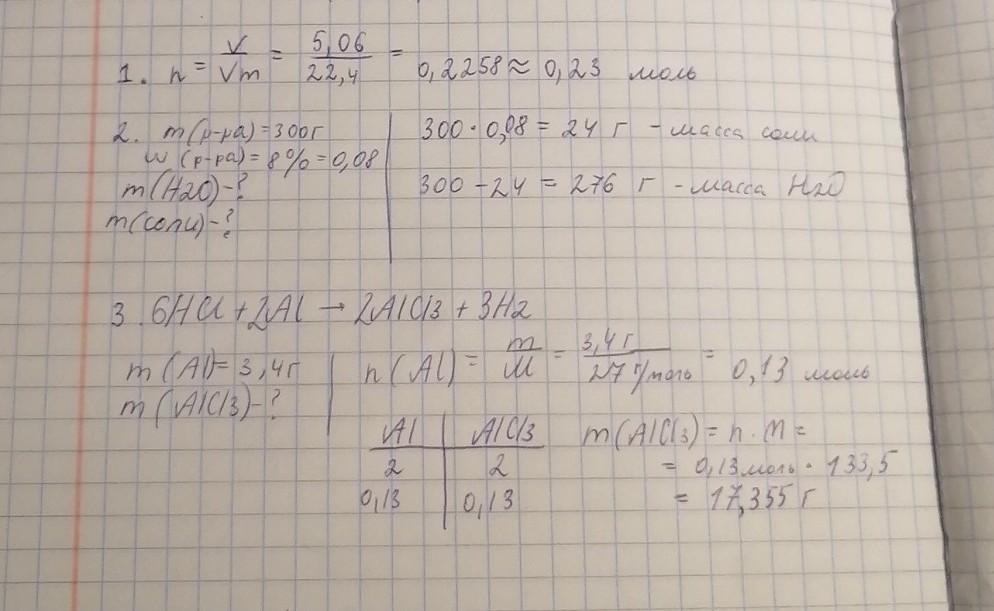 1. n = V/Vm = 5,06/22,4 = 0,2258 ≈ 0,23 моль
2. m(р-ра)=300г
w(р-ра)=8%=0,08
m(H2O)-?
m(соли)-?
300·0,08 = 24 г - масса соли
300-24 = 276 г - масса H2O
3. 6HCl + 2Al → 2AlCl3 + 3H2
m(Al)=3,4г
m(AlCl3)-?
n(Al) = m/M = 3,4г/27 г/моль = 0,13 моль
Al | AlCl3
2 | 2
0,13 | 0,13
m(AlCl3) = n·M =
= 0,13моль·133,5
= 17,355 г